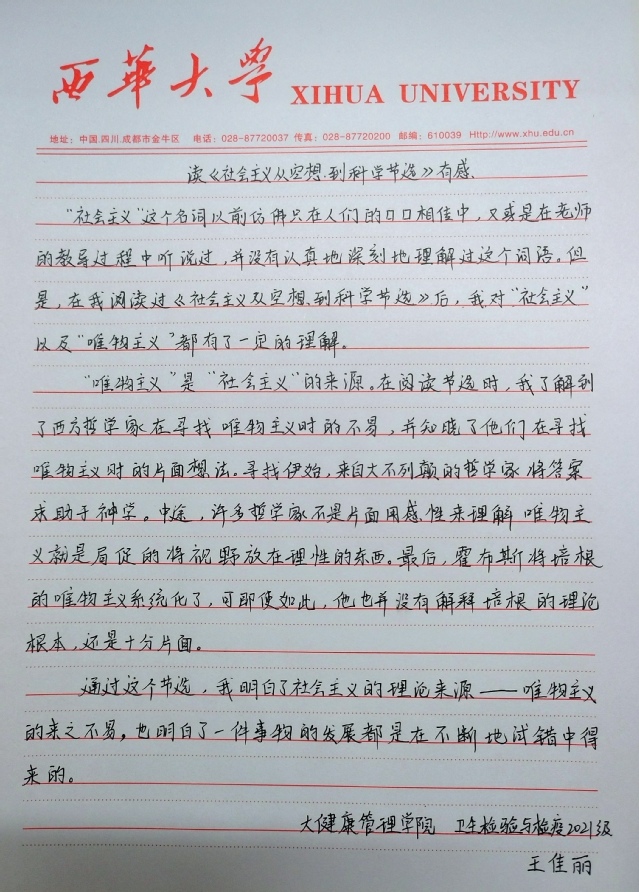 西華大學 XIHUA UNIVERSITY
地址：中国.四川.成都市金牛区 电话：028-87720037 传真：028-87720200 邮编：610039 Http://www.xhu.edu.cn
读《社会主义从空想到科学节选》有感
“社会主义”这个名词以前仿佛只在人们的口口相传中，又或是在老师
的教导过程中听说过，并没有认真地深刻地理解过这个词语。但
是，在我阅读过《社会主义从空想到科学节选》后，我对“社会主义”
以及“唯物主义”都有了一定的理解。
“唯物主义”是“社会主义”的来源。在阅读节选时，我了解到
了西方哲学家在寻找唯物主义时的不易，并知晓了他们在寻找
唯物主义时的片面想法。寻找伊始，来自大不列颠的哲学家将答案
求助于神学。中途，许多哲学家不是片面用感性来理解唯物主
义就是局促的将视野放在理性的东西。最后，霍布斯将培根
的唯物主义系统化了，可即使如此，他也并没有解释培根的理论
根本，还是十分片面。
通过这个节选，我明白了社会主义的理论来源——唯物主义
的来之不易，也明白了一件事物的发展都是在不断地试错中得
来的。
大健康管理学院 卫生检验与检疫2021级
王佳丽